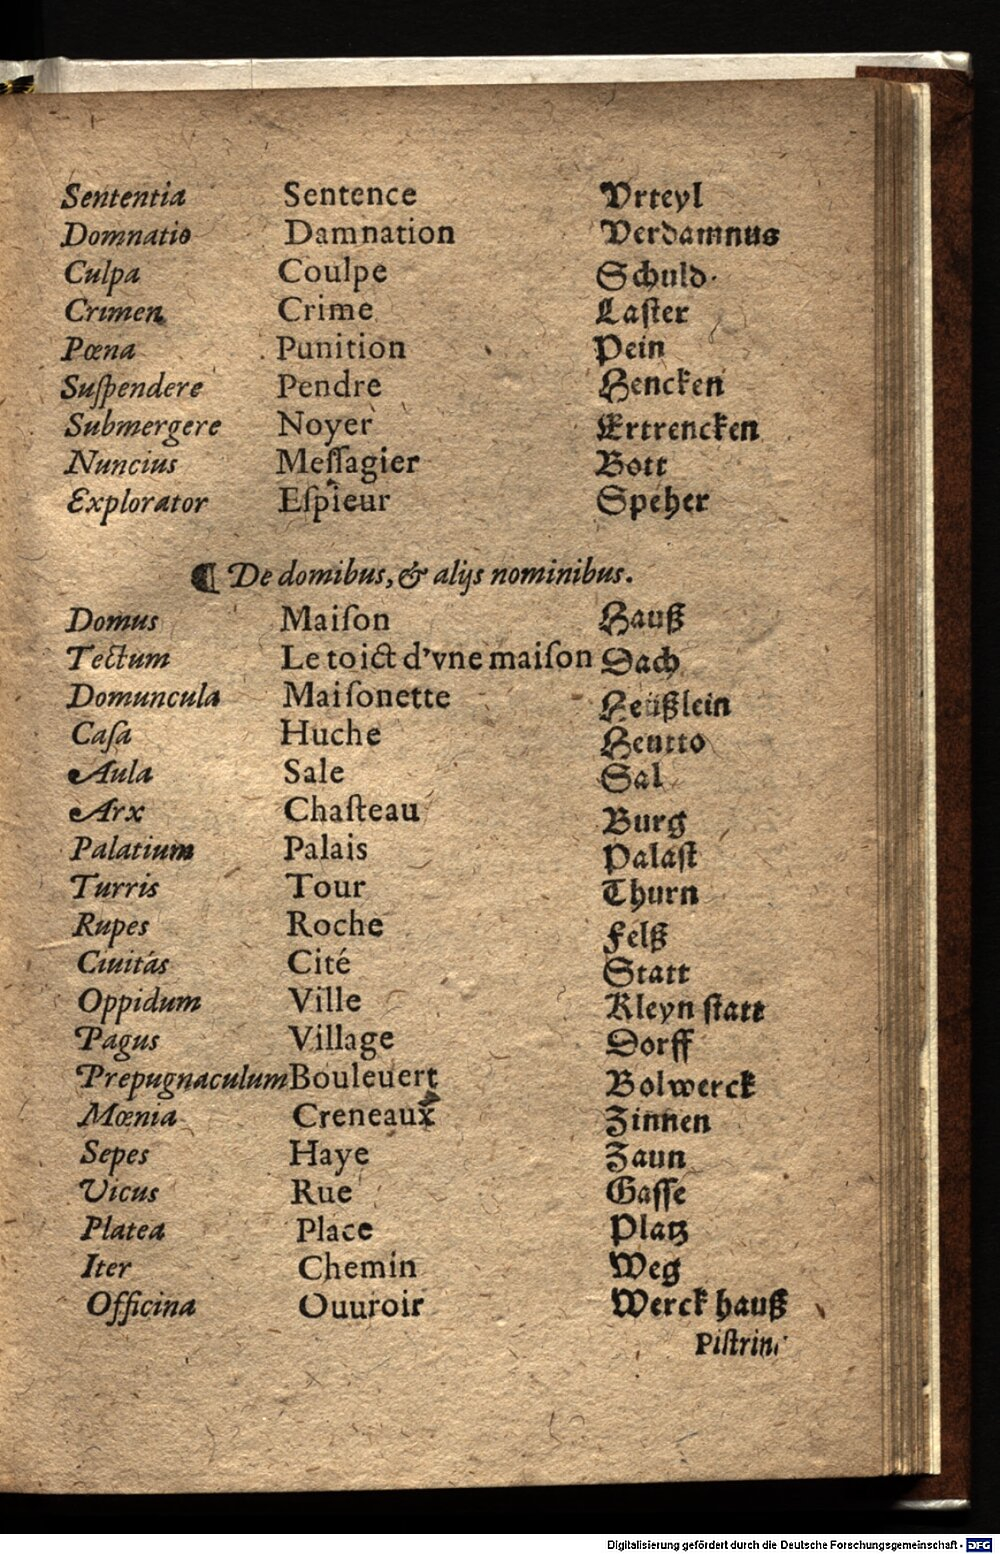 Sententia Sentence Vrteyl
Domnatio Damnation Verdamnus
Culpa Coulpe Schuld.
Crimen Crime Laſter
Pœna Punition Pein
Suſpendere Pendre Hencken
Submergere Noyer Ertrencken
Nuncius Meſſagier Bott
Explorator Eſpieur Speher
¶ De domibus, & alijs nominibus.
Domus Maiſon Hauß
Tectum Le toict d'vne maiſon Dach
Domuncula Maiſonette Heüßlein
Caſa Huche Heutto
Aula Sale Sal
Arx Chaſteau Burg
Palatium Palais Palaſt
Turris Tour Thurn
Rupes Roche Felß
Ciuitás Cité Statt
Oppidum Ville Kleyn ſtatt
Pagus Village Dorff
Prepugnaculum Bouleuert Bolwerck
Mœnia Creneaux Zinnen
Sepes Haye Zaun
Vicus Rue Gaſſe
Platea Place Platz
Iter Chemin Weg
Officina Ouuroir Werck hauß
Piſtrin
Digitalisierung gefördert durch die Deutsche Forschungsgemeinschaft - DFG